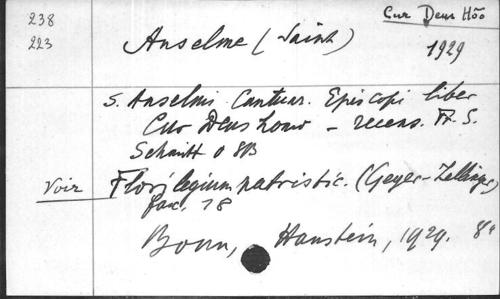 238
223
Cur Deus Hôo
Anselme (Saint)
1929
S. Anselmi Cantuar. Episcopi liber
Cur Deus homo - recens. Fr. S.
Schmitt O SB
Voir Florilegium patristic. (Geyer-Zellinger)
fasc. 18
Bonn, Hanstein, 1929. 8°